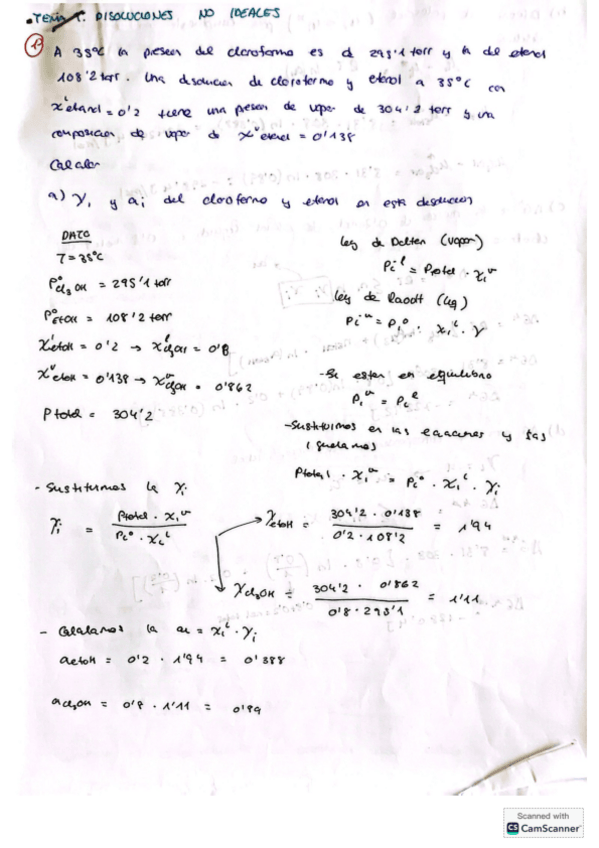 TEMA 7. DISOLUCIONES NO IDEALES
1º A 35ºC la presion del cloroformo es d 295'1 torr y la del etanol
108'2 torr. Una disolucion de cloroformo y etanol a 35ºC con
x^l etanol = 0'2 tiene una presion de vapor de 304'2 torr y una
composicion de vapor de x^v etanol = 0'138
Calcular
a) γi y ai del cloroformo y etanol en esta disolucion
DATO
T = 35ºC
PºCl3OH = 295'1 torr
PºEtOH = 108'2 torr
x^l etOH = 0'2 → x^l Cl3OH = 0'8
x^v etOH = 0'138 → x^v Cl3OH = 0'862
Ptotal = 304'2
Ley de Dalton (vapor)
Pi^l = Ptotal · xi^v
Ley de Raoult (liq)
Pi^v = Piº · xi^l · γ
- Se estan en equilibrio
Pi^v = Pi^l
- Sustituimos en las ecuaciones y las
igualamos
Ptotal · xi^v = Piº · xi^l · γi
- Sustituimos la γi
γi = Ptotal · xi^v / Piº · xi^l
γetOH = 304'2 · 0'138 / 0'2 · 108'2 = 1'94
γCl3OH = 304'2 · 0'862 / 0'8 · 295'1 = 1'11
- Calculamos la ai = xi^l · γi
aetOH = 0'2 · 1'94 = 0'388
aCl3OH = 0'8 · 1'11 = 0'89
Scanned with
CS CamScanner